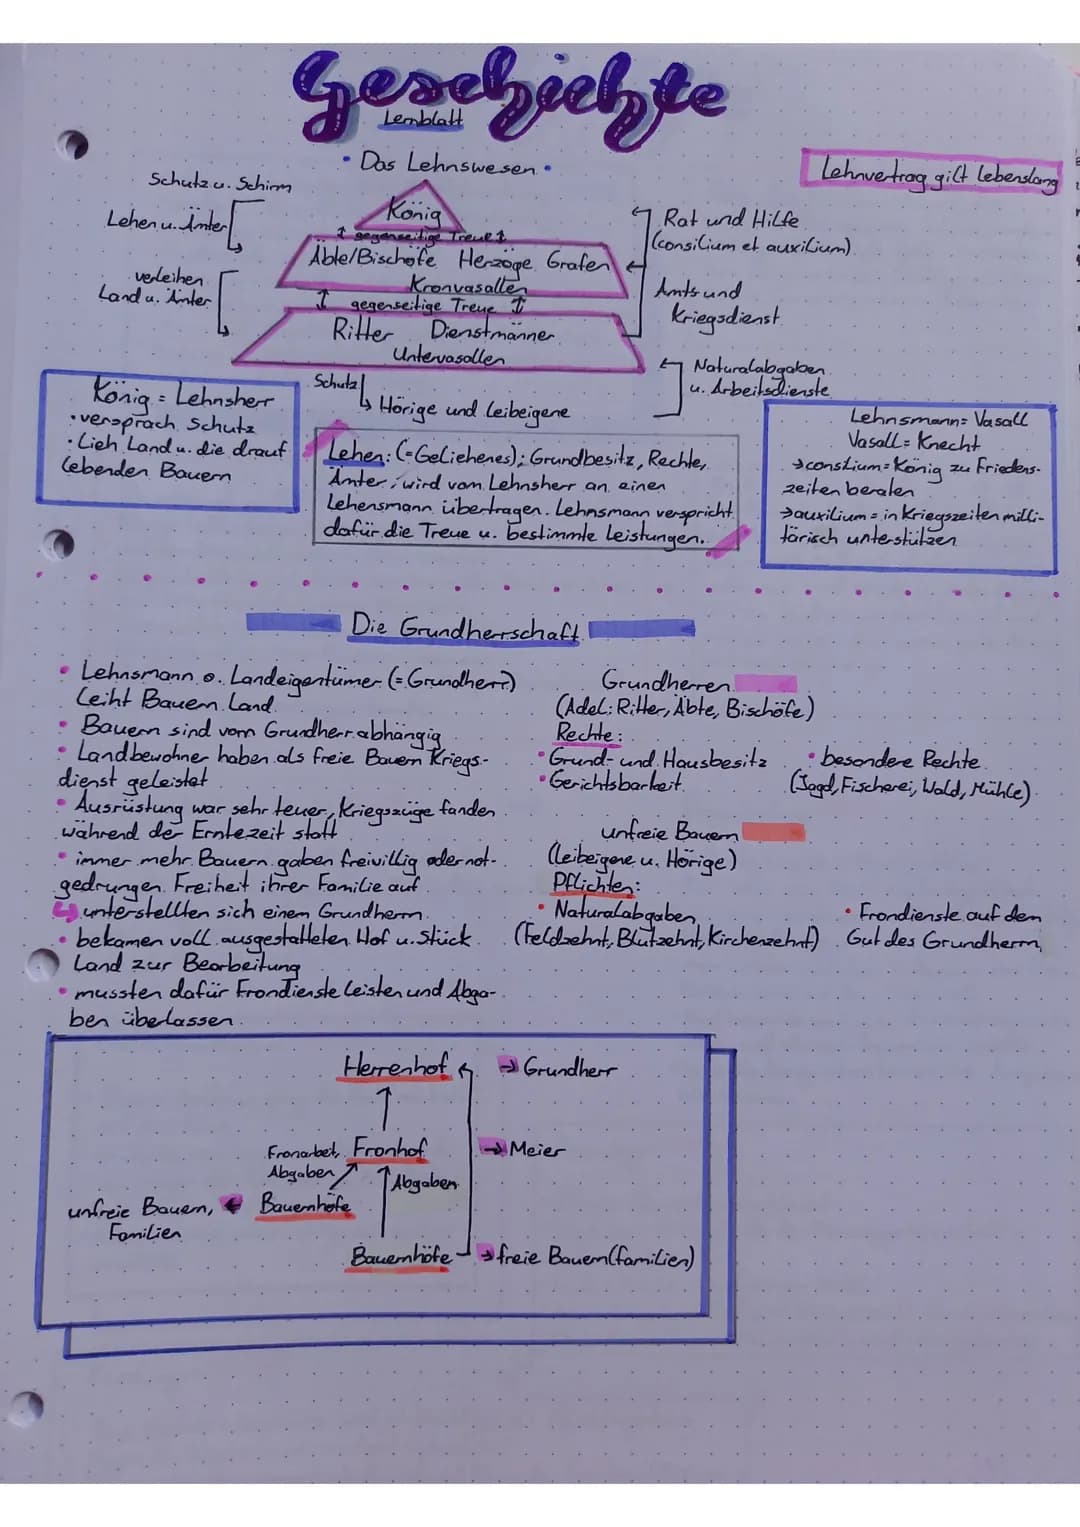 Geschichte
Lernblatt
• Das Lehnswesen •
Lehnvertrag gilt lebenslang
Schutz u. Schirm
Lehen u. Ämter
verleihen
Land u. Ämter
König
↕ gegenseitige Treue ↕
Äbte/Bischöfe Herzöge Grafen
Kronvasallen
↕ gegenseitige Treue ↕
Ritter Dienstmänner
Untervasallen
Rat und Hilfe
(consilium et auxilium)
Amts und
Kriegsdienst
Naturalabgaben
u. Arbeitsdienste
Schutz
Hörige und Leibeigene
König = Lehnsherr
• versprach Schutz
• Lieh Land u. die drauf
lebenden Bauern
Lehen: (=Geliehenes); Grundbesitz, Rechte,
Ämter; wird vom Lehnsherr an einen
Lehensmann übertragen. Lehnsmann verspricht
dafür die Treue u. bestimmte Leistungen.
Lehnsmann = Vasall
Vasall = Knecht
→ consilium = König zu Friedens-
zeiten beraten
→ auxilium = in Kriegszeiten milli-
tärisch unterstützen
Die Grundherrschaft
• Lehnsmann o. Landeigentümer (= Grundherr)
leiht Bauern Land
• Bauern sind vom Grundherr abhängig
• Landbewohner haben als freie Bauern Kriegs-
dienst geleistet
• Ausrüstung war sehr teuer, Kriegszüge fanden
während der Erntezeit statt
• immer mehr Bauern gaben freiwillig oder not-
gedrungen Freiheit ihrer Familie auf
↳ unterstellten sich einem Grundherrn
• bekamen voll ausgestatteten Hof u. Stück
Land zur Bearbeitung
• mussten dafür Frondienste leisten und Abga-
ben überlassen
Grundherren
(Adel: Ritter, Äbte, Bischöfe)
Rechte:
• Grund- und Hausbesitz
• Gerichtsbarkeit
• besondere Rechte
(Jagd, Fischerei, Wald, Mühle)
unfreie Bauern
(Leibeigene u. Hörige)
Pflichten:
• Naturalabgaben
(Feldzehnt, Blutzehnt, Kirchenzehnt)
• Frondienste auf dem
Gut des Grundherrn
Herrenhof → Grundherr
Fronarbeit, Fronhof → Meier
Abgaben
Abgaben
unfreie Bauern, ← Bauernhöfe
Familien
Bauernhöfe → freie Bauern (familien)